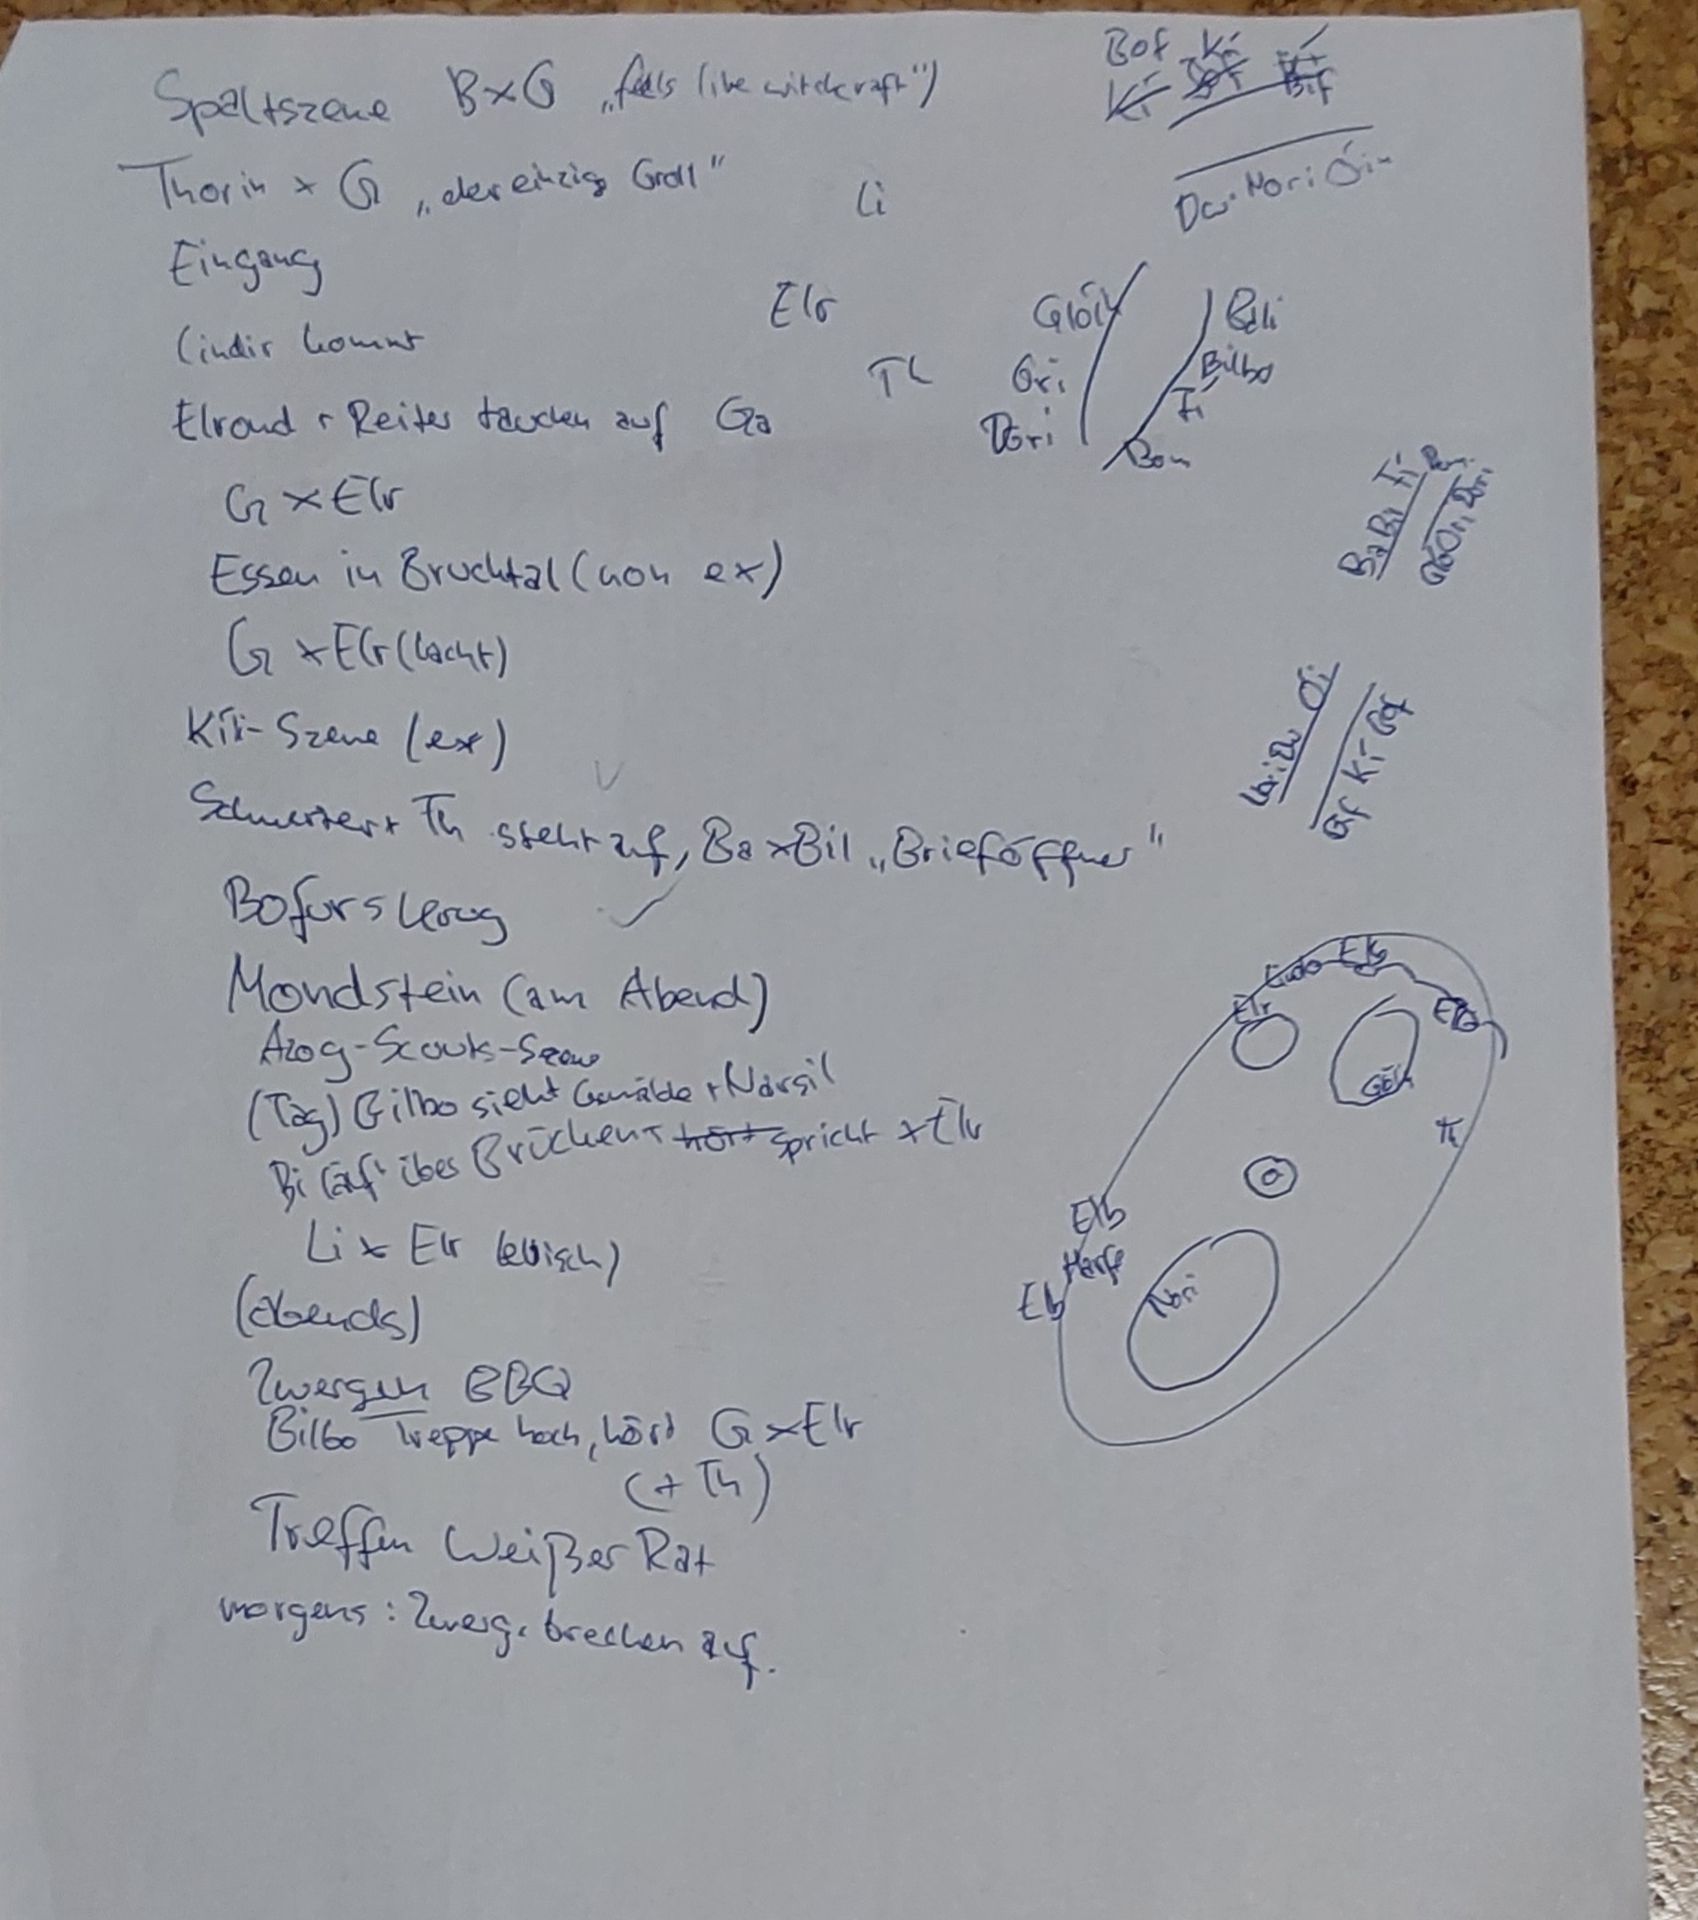 Spaltszene BxG „feels like witchcraft")
Thorin x G „der einzige Groll"
Eingang
Lindir kommt
Elrond + Reiter tauchen auf
G x Elr
Essen in Bruchtal (non ex)
G x Elr (lacht)
Kili-Szene (ex)
Schwerter + Th steht auf, Ba x Bil „Brieföffner"
Bofurs
Mondstein (am Abend)
Azog-Scouts-Szene
(Tag) Bilbo sieht Gemälde + Narsil
Bi läuft über Brücken + hört spricht x Elr
Li x Elr (elbisch)
(abends)
Zwergen BBQ
Bilbo Treppe hoch, hört G x Elr
(+ Th)
Treffen Weißer Rat
morgens: Zwerg. brechen auf.
Bof Ki
Ki Bof Bif
Dw. Nori Óin
Li
Elr
Th
Ga
Glóin
Ori
Dori
Bali
Bilbo
Fí
Bom
Ba Bi Fi
Gló Ori Dori
Nori Dw Ói
Bif Ki Bof
Elr
Lindo Elb
Elb
Glóin
Th
Elb
Harfe
Elb
Nori